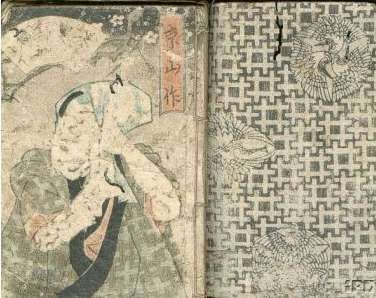 京山作